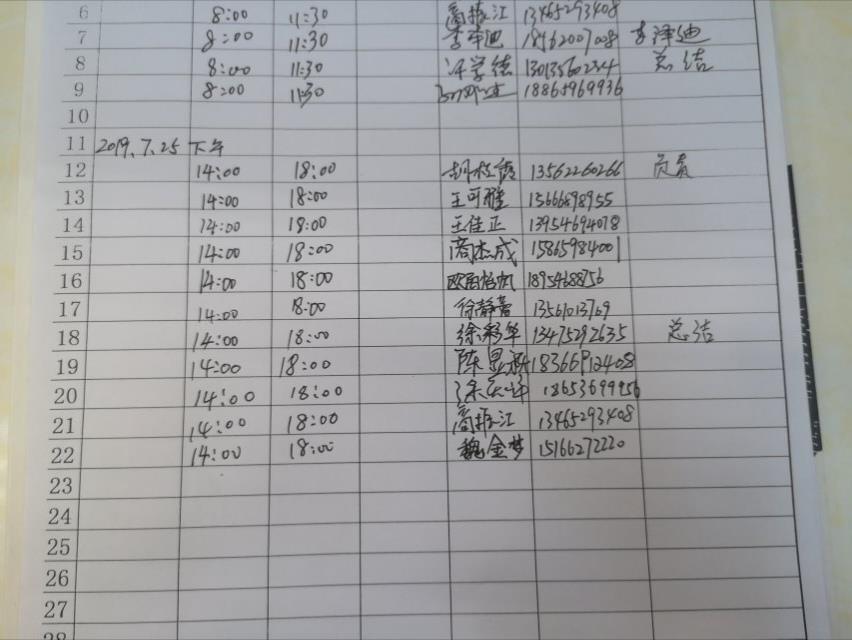 6 8:00 11:30 商振江 13465293408
7 8:00 11:30 李泽迪 18562007008 李泽迪
8 8:00 11:30 13013560234 总结
9 8:00 11:30 18865969936
10
11 2019.7.25 下午
12 14:00 18:00 13562260266 负责
13 14:00 18:00 王可雅 15666898955
14 14:00 18:00 王佳正 13954694078
15 14:00 18:00 商杰成 15865984001
16 14:00 18:00 欧阳怡帆 1895468856
17 14:00 18:00 徐静蕾 13561013769
18 14:00 18:00 徐彩华 13475292635 总结
19 14:00 18:00 18366912408
20 14:00 18:00 18653699956
21 14:00 18:00 商振江 13465293408
22 14:00 18:00 魏金梦 15166272220
23
24
25
26
27
28